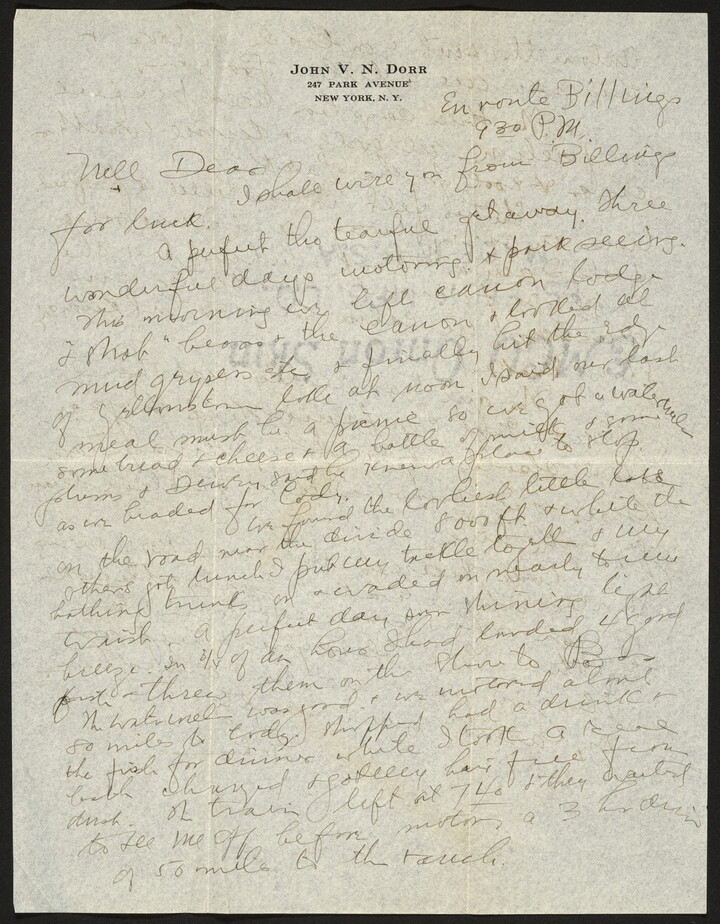 JOHN V. N. DORR
247 PARK AVENUE
NEW YORK, N. Y.
En route Billings
9 30 P.M.
Nell Dear
I shall wire you from Billings
for luck.
A perfect tho tearful getaway. Three
wonderful days motoring & park seeing.
This morning we left canon lodge
& "shot" bears & the canon & looked at
mud geysers etc & finally hit the edge
of Yellowstone lake at noon. I said, our last
meal must be a picnic so we got a watermelon
some bread & cheese & a bottle of milk & some
plums & Dewey said he knew a place to stop
as we headed for Cody.
We found the loveliest little lake
on the road near the divide 8000 ft & while the
others got lunch I put my tackle together & my
bathing trunks on & waded in nearly to my
waist. A perfect day sun shining light
breeze. In 3/4 of an hour I had landed 4 good
fish & threw them on the shore to
The watermelon was good & we motored about
80 miles to Cody. Shopped had a drink &
the fish for dinner while I took a
bath changed & got my hair free from
dust. The train left at 7 40 & they waited
to see me off before motoring a 3 hr drive
of 50 miles to the ranch.